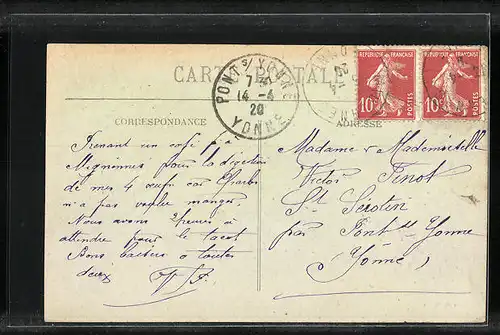 CARTE POSTALE
PONT s/ YONNE
7 45
14 - 4
20
YONNE
REPUBLIQUE FRANÇAISE
10c
POSTES
REPUBLIQUE FRANÇAISE
10c
POSTES
CORRESPONDANCE
ADRESSE
Prenant un café !!
Mignonnes pour la digestion
de mes 4 œufs car Charles
n'a pas voulu manger.
Nous avons 2 heures à
attendre pour le tacot
Bons baisers à toutes
deux
Madame & Mademoiselle
Victor Finot
St Sérotin
par Pont s/ Yonne
(Yonne)